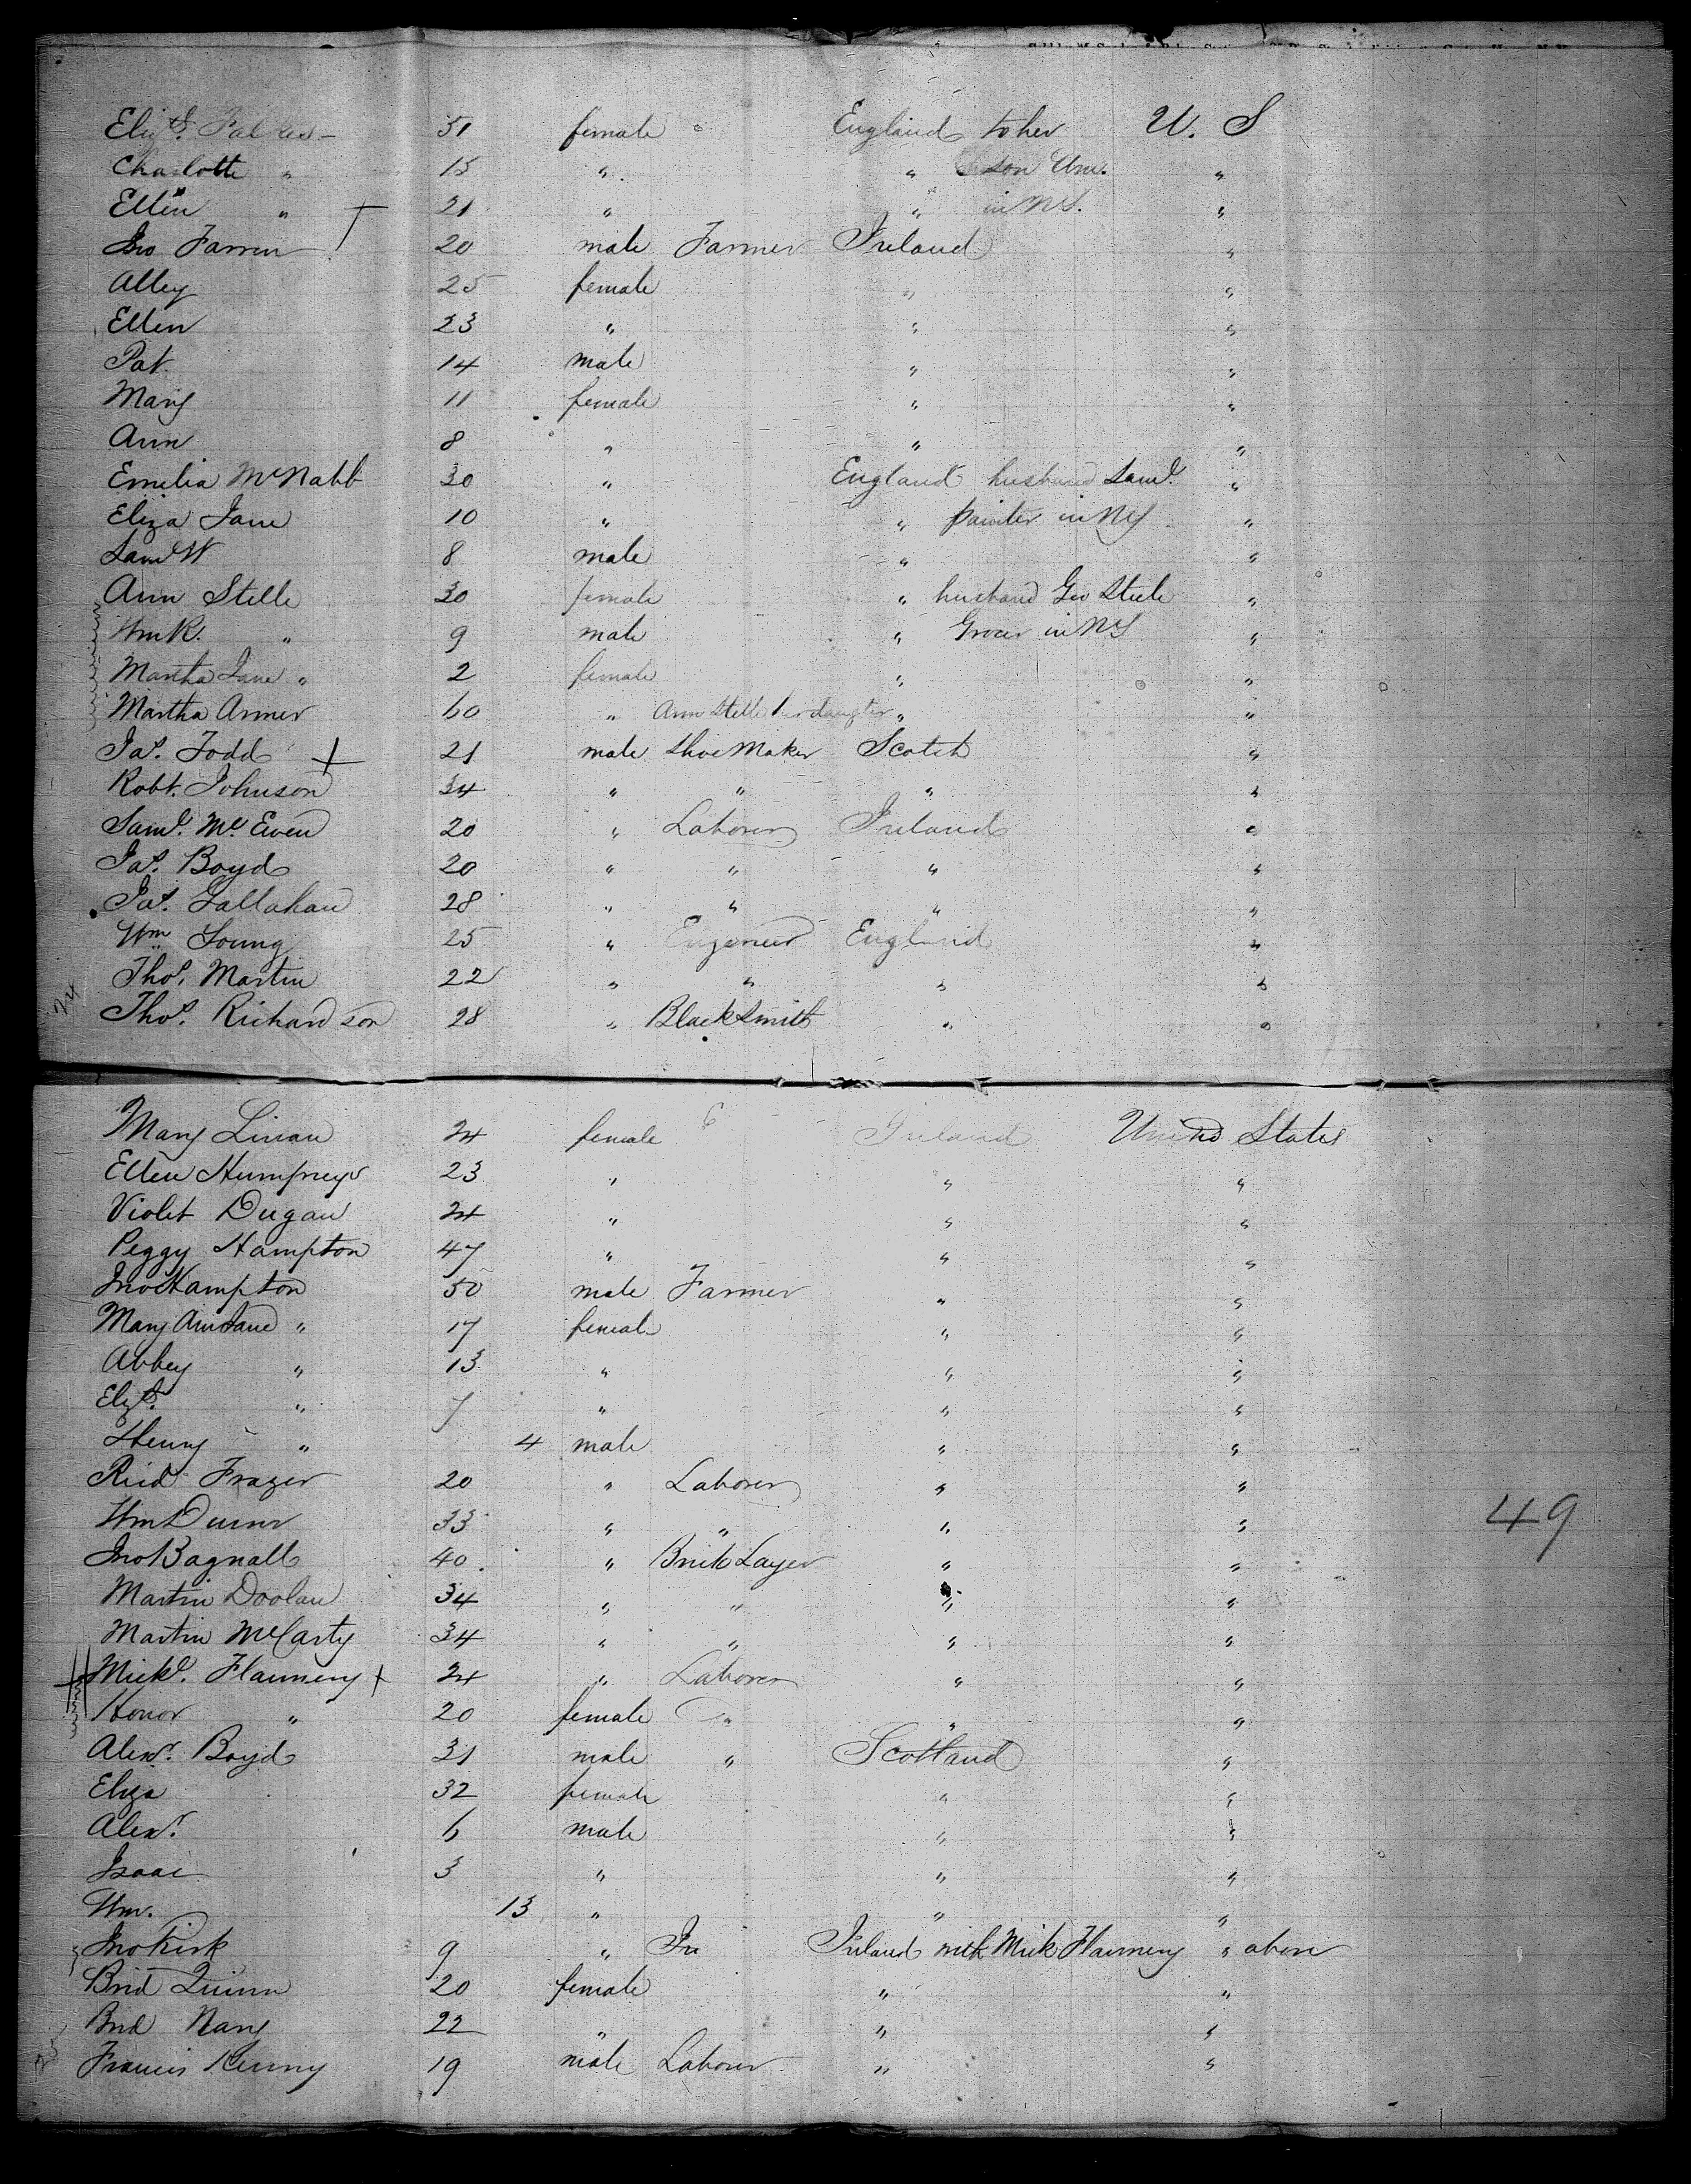 Elizth. 51 female England to her U. S
Charlotte " 15 " " son Wm. "
Ellen " 21 " " in NY. "
Jno Farren 20 male Farmer Ireland "
Alley 25 female " "
Ellen 23 " " "
Pat. 14 male " "
Mary 11 female " "
Ann 8 " " "
Emilia McNabb 30 " England husband Saml. "
Eliza Jane 10 " " painter in NY "
Saml W 8 male " "
Ann Stelle 30 female " husband Geo Steele "
Wm R. " 9 male " Grocer in NY "
Martha Jane " 2 female " "
Martha Armer 60 " Ann Stelle her daugter " "
Jas. Todd 21 male Shoe Maker Scotch "
Robt. Johnson 34 " " " "
Saml. McEwen 20 " Laborer Ireland "
Jas. Boyd 20 " " " "
Jas. Gallahan 28 " " " "
Wm Young 25 " Engineer England "
Thos. Martin 22 " " " "
24 Thos. Richardson 28 " Blacksmith " "
Mary Linan 24 female Ireland United States
Ellen Humpreys 23 " " "
Violet Dugan 24 " " "
Peggy Hampton 47 " " "
Jno Hampton 50 male Farmer " "
Mary Ann Jane " 17 female " "
Abbey " 13 " " "
Elizth. " 7 " " "
Henry " 4 male " "
Reid Frazer 20 " Laborer " "
Wm 33 " " " "
49
Jno Bagnall 40 " Brick Layer " "
Martin Doolan 34 " " " "
Martin McCarty 34 " " " "
Mickl. Flannery 24 " Laborer " "
Honor " 20 female " " "
Alexr. Boyd 31 male " Scotland "
Eliza 32 female " "
Alexr. 6 male " "
Isaac 3 " " "
Wm. 13 " " "
Jno Kirk 9 " In Ireland with Mick Flannery " above
Brid Quinn 20 female " "
Brid Nary 22 " " "
25 Francis Kenny 19 male Laborer " "